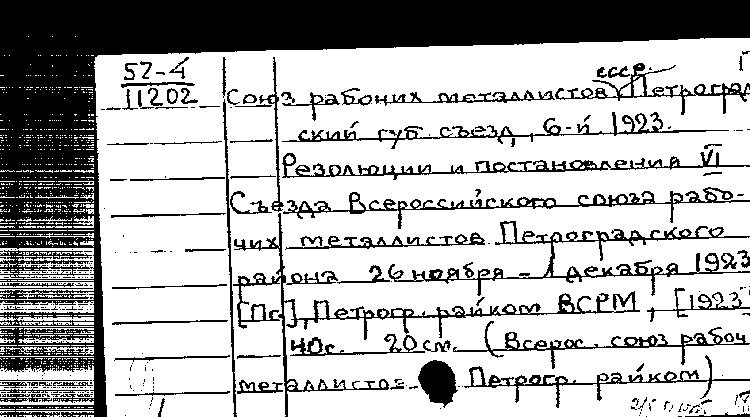 57-4
11202
ссср.
Союз рабочих металлистов, Петроград
ский губ. съезд, 6-й. 1923.
Резолюции и постановления VI
Съезда Всероссийского союза рабо-
чих металлистов Петроградского
района 26 ноября - 1 декабря 1923
[Пг.], Петрогр. райком ВСРМ, [1923]
40с. 20см. (Всерос. союз рабоч
металлистов. Петрогр. райком)